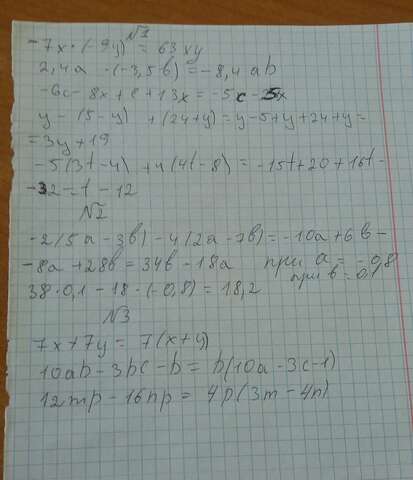 №1
-7x·(-9y) = 63xy
2,4a·(-3,5b) = -8,4ab
-6c - 8x + c + 13x = -5c - 5x
y - (5-y) + (24+y) = y-5+y+24+y=
=3y+19
-5(3t-4) + 4(4t-8) = -15t+20+16t-
-32 = t - 12
№2
-2(5a-3b) - 4(2a-7b) = -10a+6b-
-8a+28b = 34b-18a при a = -0,8
при b = 0,1
38·0,1 - 18·(-0,8) = 18,2
№3
7x+7y = 7(x+y)
10ab-3bc-b = b(10a-3c-1)
12mp-16np = 4p(3m-4n)